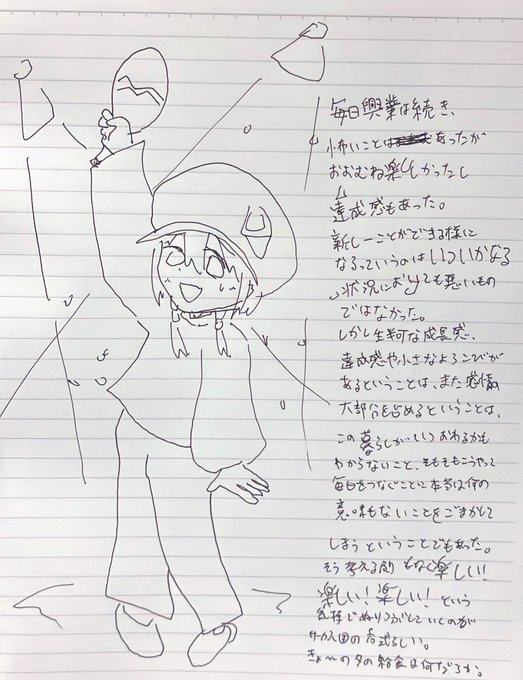 毎日興業は続き、
怖いことはあったが
おおむね楽しかったし
達成感もあった。
新しーことができる様に
なるっていうのはいついかなる
状況においても悪いもの
ではなかった。
しかし生半可な成長感、
達成感や小さなよろこびが
あるということは、また感情の
大部分を占めるということは、
この暮らしがいつおわるかも
わからないこと、そもそもこうやって
毎日をつなぐことに本当は何の
意味もないことをごまかして
しまうということでもあった。
そう考える間もなく楽しい!
楽しい!楽しい!という
気持でぬりつぶしていくのが
サーカス団の方式らしい。
きょーの夕の給食は何だろか。